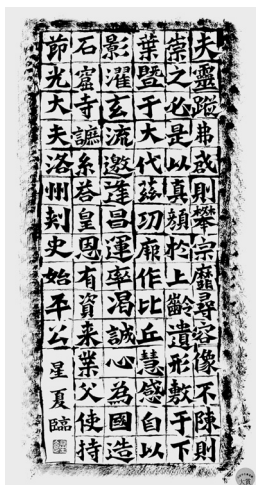 夫靈蹤弗啟則攀宗靡尋容像不陳則
崇之必是以真顔於上齡遺形敷于下
葉暨于大代茲功厥作比丘慧感自以
影濯玄流邀逢昌運率渴誠心為國造
石窟寺糸答皇恩有資来業父使持
節光大夫洛州刾史始平公 星夏臨